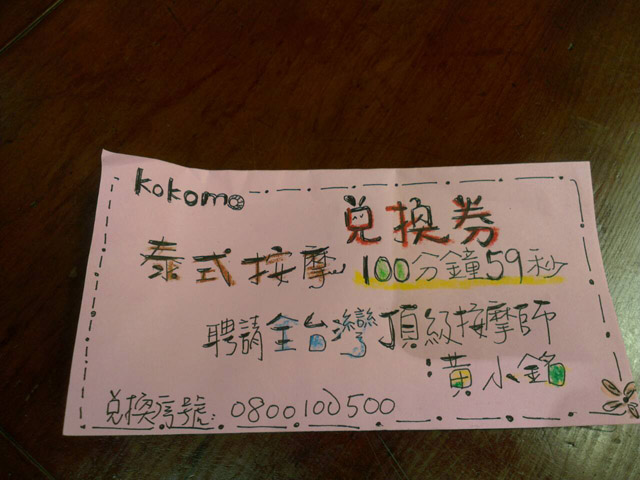 kokomo
兌換券
泰式按摩 100分鐘59秒
聘請全台灣頂級按摩師
:黃小銘
兌換專號:0800100500